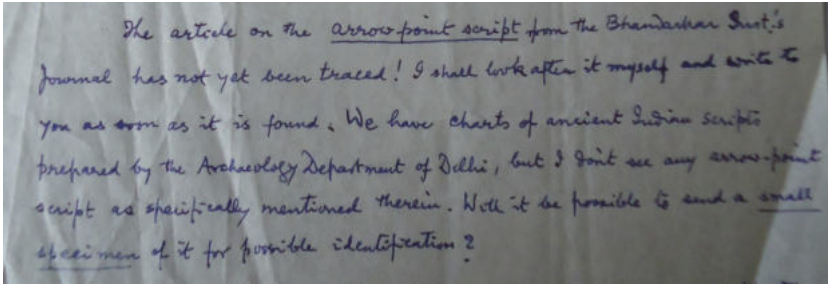 The article on the arrow point script from the Bhandarkar Inst.'s
Journal has not yet been traced! I shall look after it myself and write to
you as soon as it is found. We have charts of ancient Indian scripts
prepared by the Archaeology Department of Delhi, but I don't see any arrow-point
script as specifically mentioned therein. Will it be possible to send a small
specimen of it for possible identification?